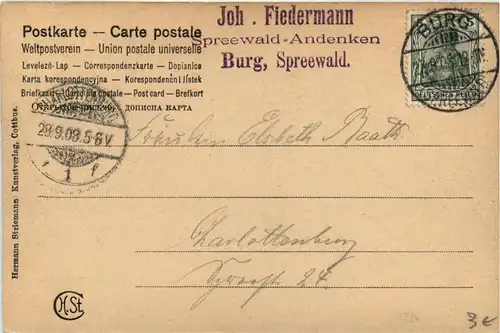 Joh . Fiedermann
Spreewald-Andenken
Burg, Spreewald.
Postkarte – Carte postale
Weltpostverein – Union postale universelle
Levelező-Lap – Correspondenzkarte – Dopisnice
Karta korespondencyjna – Korespondenční lístek
Briefkaart – Cartolina postale – Post card – Brefkort
ОТКРЫТОЕ ПИСЬМО ДОПИСНА КАРТА
BURG
DEUTSCHES REICH
CHARLOTTENBURG
29.9.09.5-6V
1 f
Fräulein Elsbeth Baath
Charlottenburg
24
Hermann Striemann Kunstverlag, Cottbus.
H.St
3€